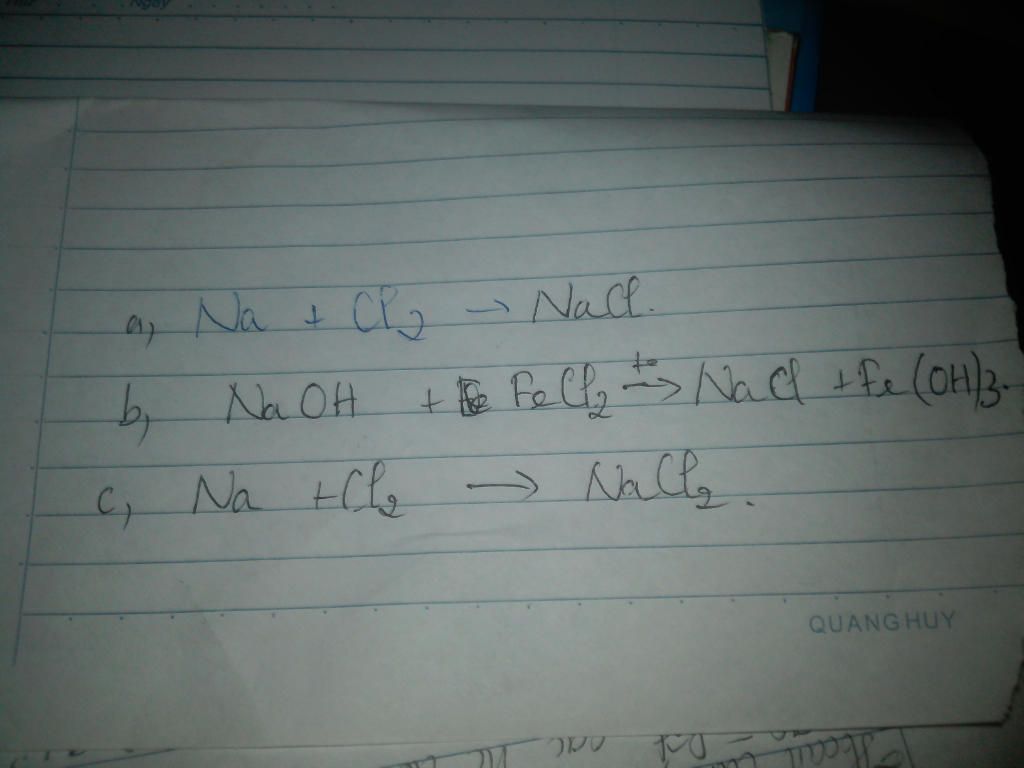 Ngày
a, Na + Cl₂ → NaCl.
b, NaOH + FeCl₂ t°→ NaCl + Fe(OH)3.
c, Na + Cl₂ → NaCl₂.
QUANG HUY